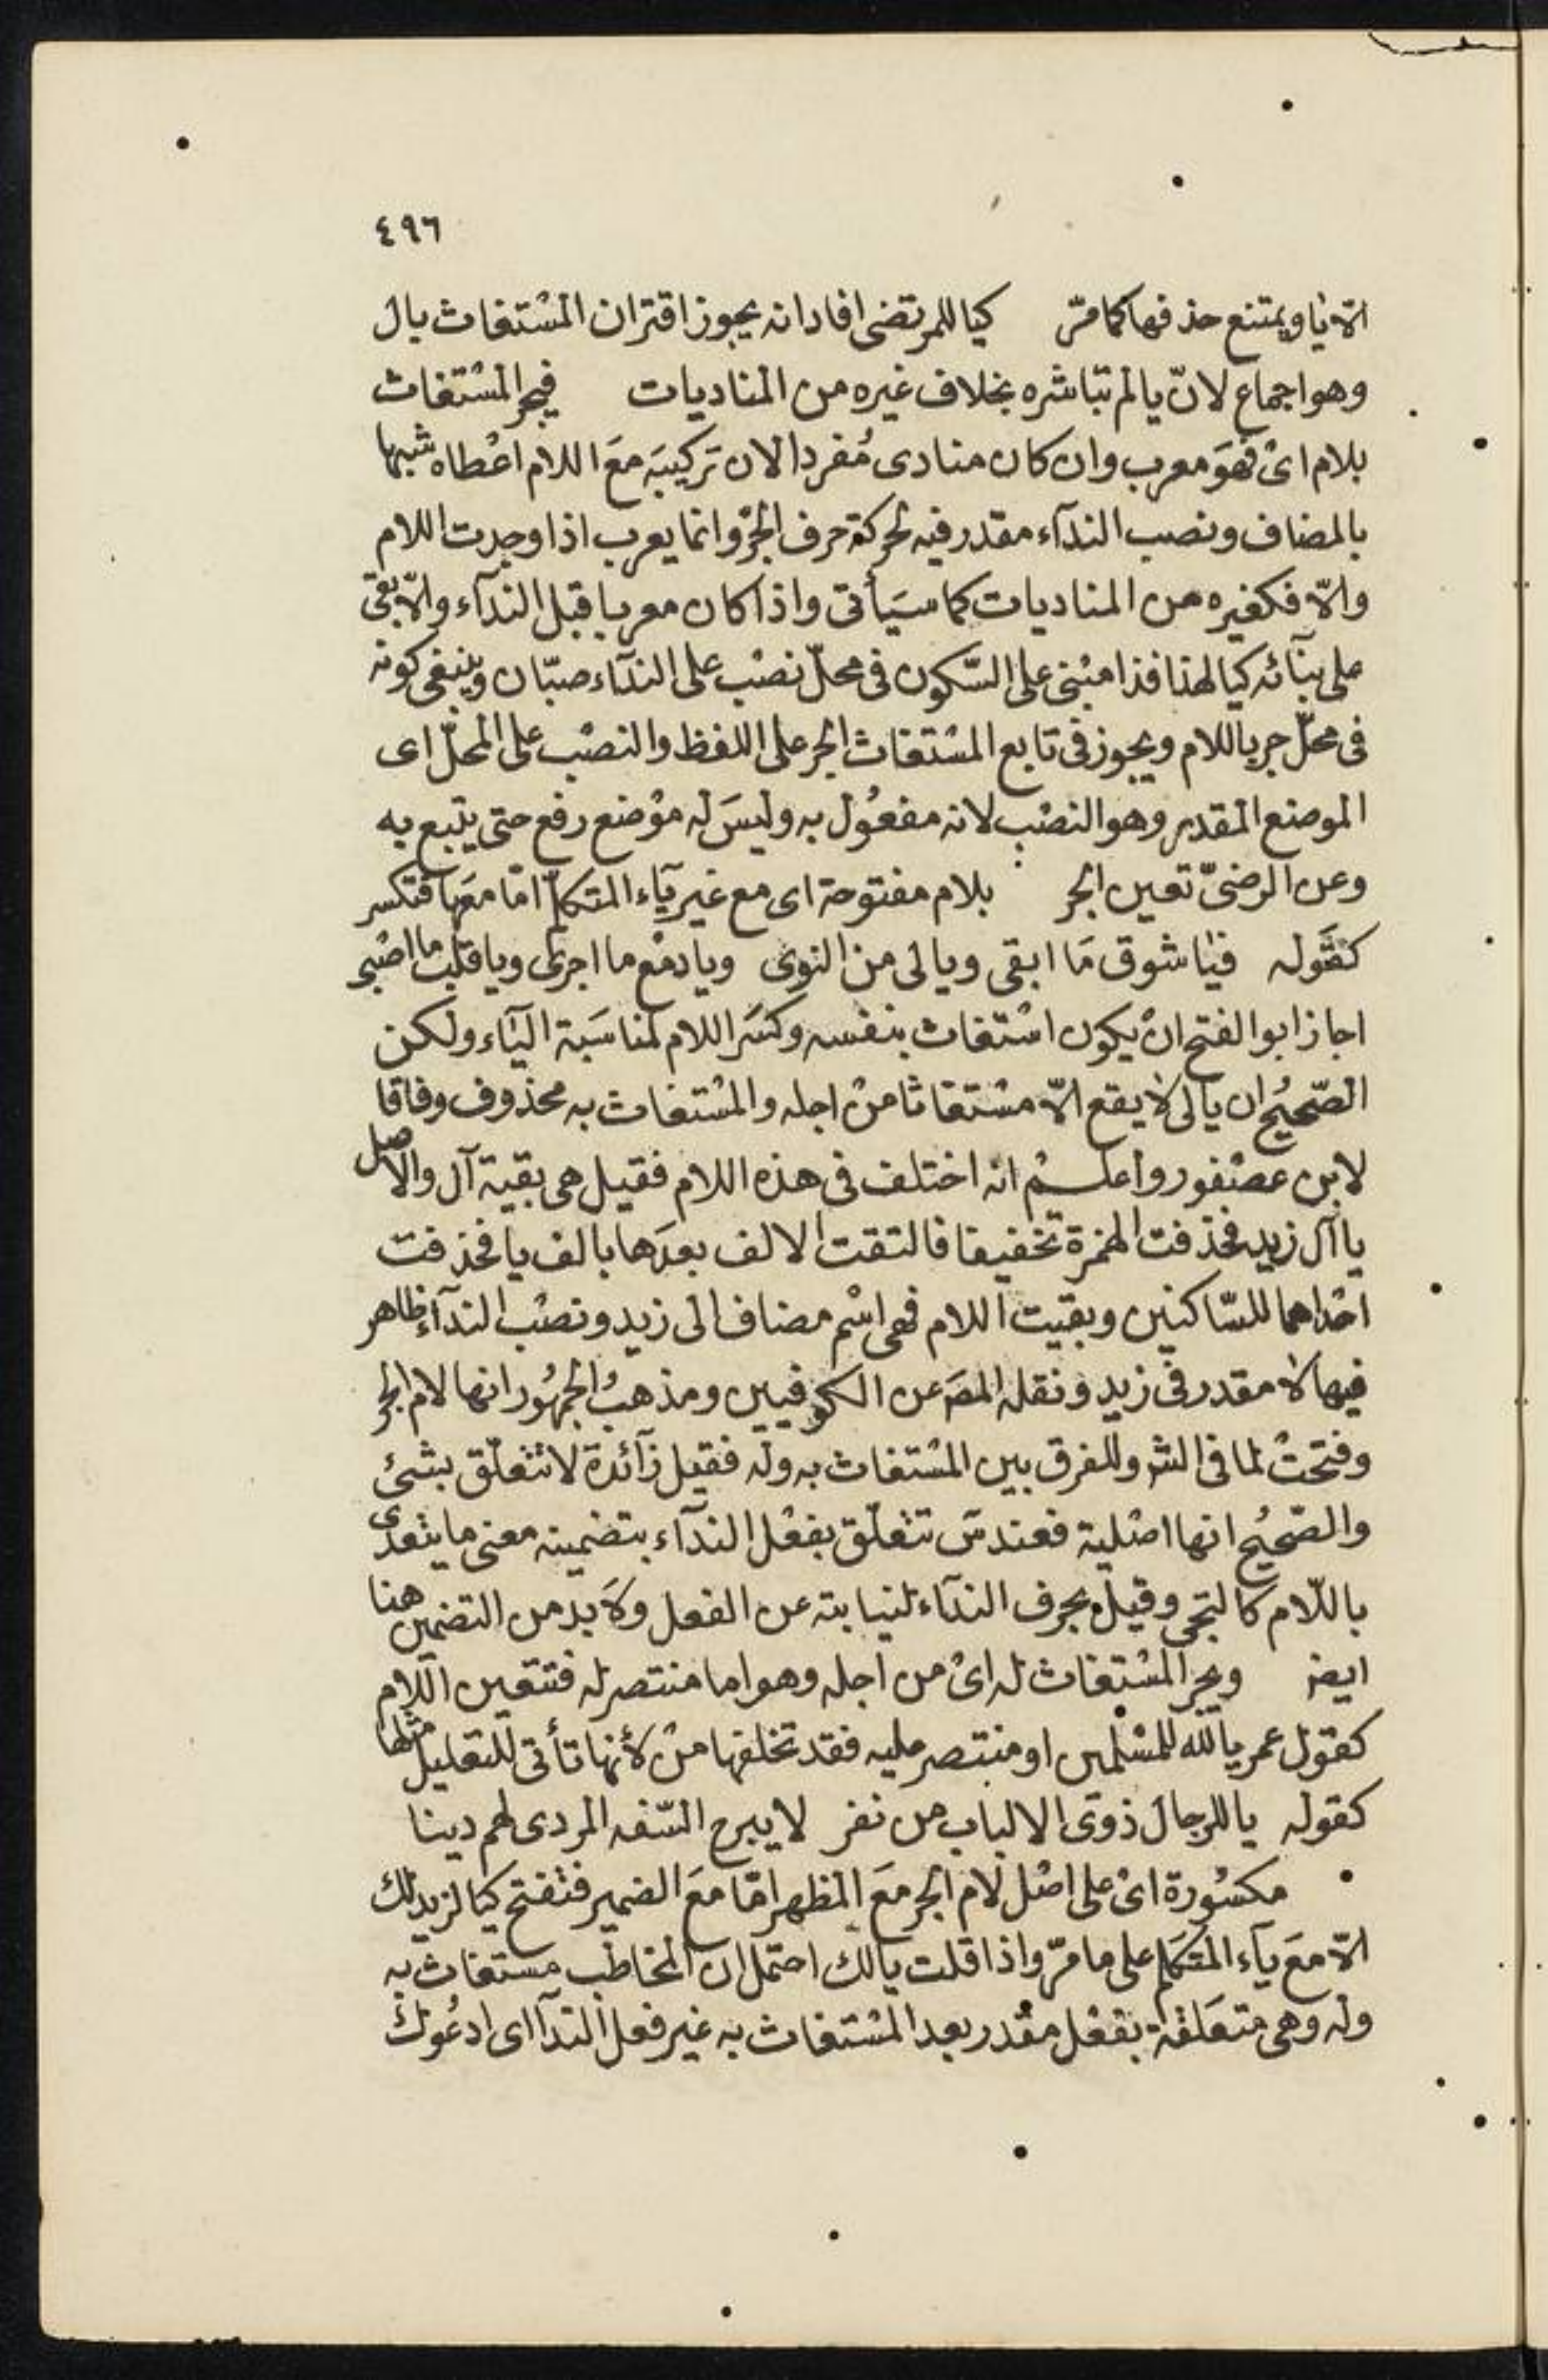 ٤٩٦
الّا يا ويمتنع حذفها كما مرّ كيا للمرتضى افاد انه يجوز اقتران المسْتغاث بال
وهو اجماع لانّ يا لم تباشره بخلاف غيره من المناديات فيجر المسْتغاث
بلام اىْ فهوَ معرب وان كان منادى مُفردا لان تَركيبَه معَ اللام اعْطاه شبها
بالمضاف ونصب الندآء مقدر فيه لحركة حرف الجرّ وانما يعرب اذا وجدت اللام
والّا فكغيره من المناديات كما سيَأتى واذا كان معربا قبل الندآء والّا بقى
على بنآئه كيا لهذا فذا مبْنى على السّكون فى محلّ نصْب على الندآء صبّان وينبغى كونه
فى محلّ جر باللام ويجوز فى تابع المسْتغاث الجر على اللفظ والنصْب على المحلّ اى
الموضع المقدر وهو النصْب لانه مفعُول به وليسَ له موْضع رفع حتى يتبع به
وعن الرضىّ تعين الجر بلام مفتوحة اى مع غير يآء المتكلّم امّا معَها فتكسر
كقَوله فيا شوق مَا ابقى ويا لى من النوى ويا دمْع ما اجرى ويا قلب ما اصْبى
اجاز ابو الفتح انْ يكون اسْتغاث بنفسه وكسَر اللام لمناسَبة اليَاء ولكن
الصّحيُح ان يا لى لا يقع الّا مسْتغاثا منْ اجله والمسْتغاث به محذوف وفاقا
لابن عصْفور واعلمْ انه اختلف فى هذه اللام فقيل هى بقية آل والاصل
يا آل زيد فحذفت الهمزة تخفيفا فالتقت الالف بعدَها بالف يا فحذفت
احْداهما للسّاكنين وبقيت اللام فهى اسْم مضاف الى زيد ونصْب الندآء ظاهر
فيها لا مقدر فى زيد ونقله المصَ عن الكوفيين ومذهبُ الجمهُور انها لام الجر
وفتحتْ لما فى الشر وللفرق بين المسْتغاث به وله فقيل زآئدة لا تتعلّق بشئ
والصّحيُح انها اصْلية فعند سَ تتعلّق بفعْل الندآء بتضمينه معنى ما يتعدى
باللّام كالتجى وقيل بحرف الندآء لنيابته عن الفعل ولَا بد من التضمين هنا
ايضا ويجر المسْتغاث له اىْ من اجله وهو اما منتصر له فتتعين اللام
كقول عمر يا لله للمسْلمين او منتصر عليه فقد تخلفها منْ لأنها تأتى للتعليل مثلها
كقوله يا للرجال ذوى الالباب من نفر لا يبرح السّفه المردى لهم دينا
مكسُورة اىْ على اصْل لام الجر معَ المظهر امّا معَ الضمير فتفتح كيا لزيد لك
الّا معَ يآء المتكَلم على ما مرّ واذا قلت يا لك احتمل ان المخاطب مستغاث به
وله وهى متعَلقة بفعْل مقُدر بعد المسْتغاث به غير فعل الندآ اى ادعُوك